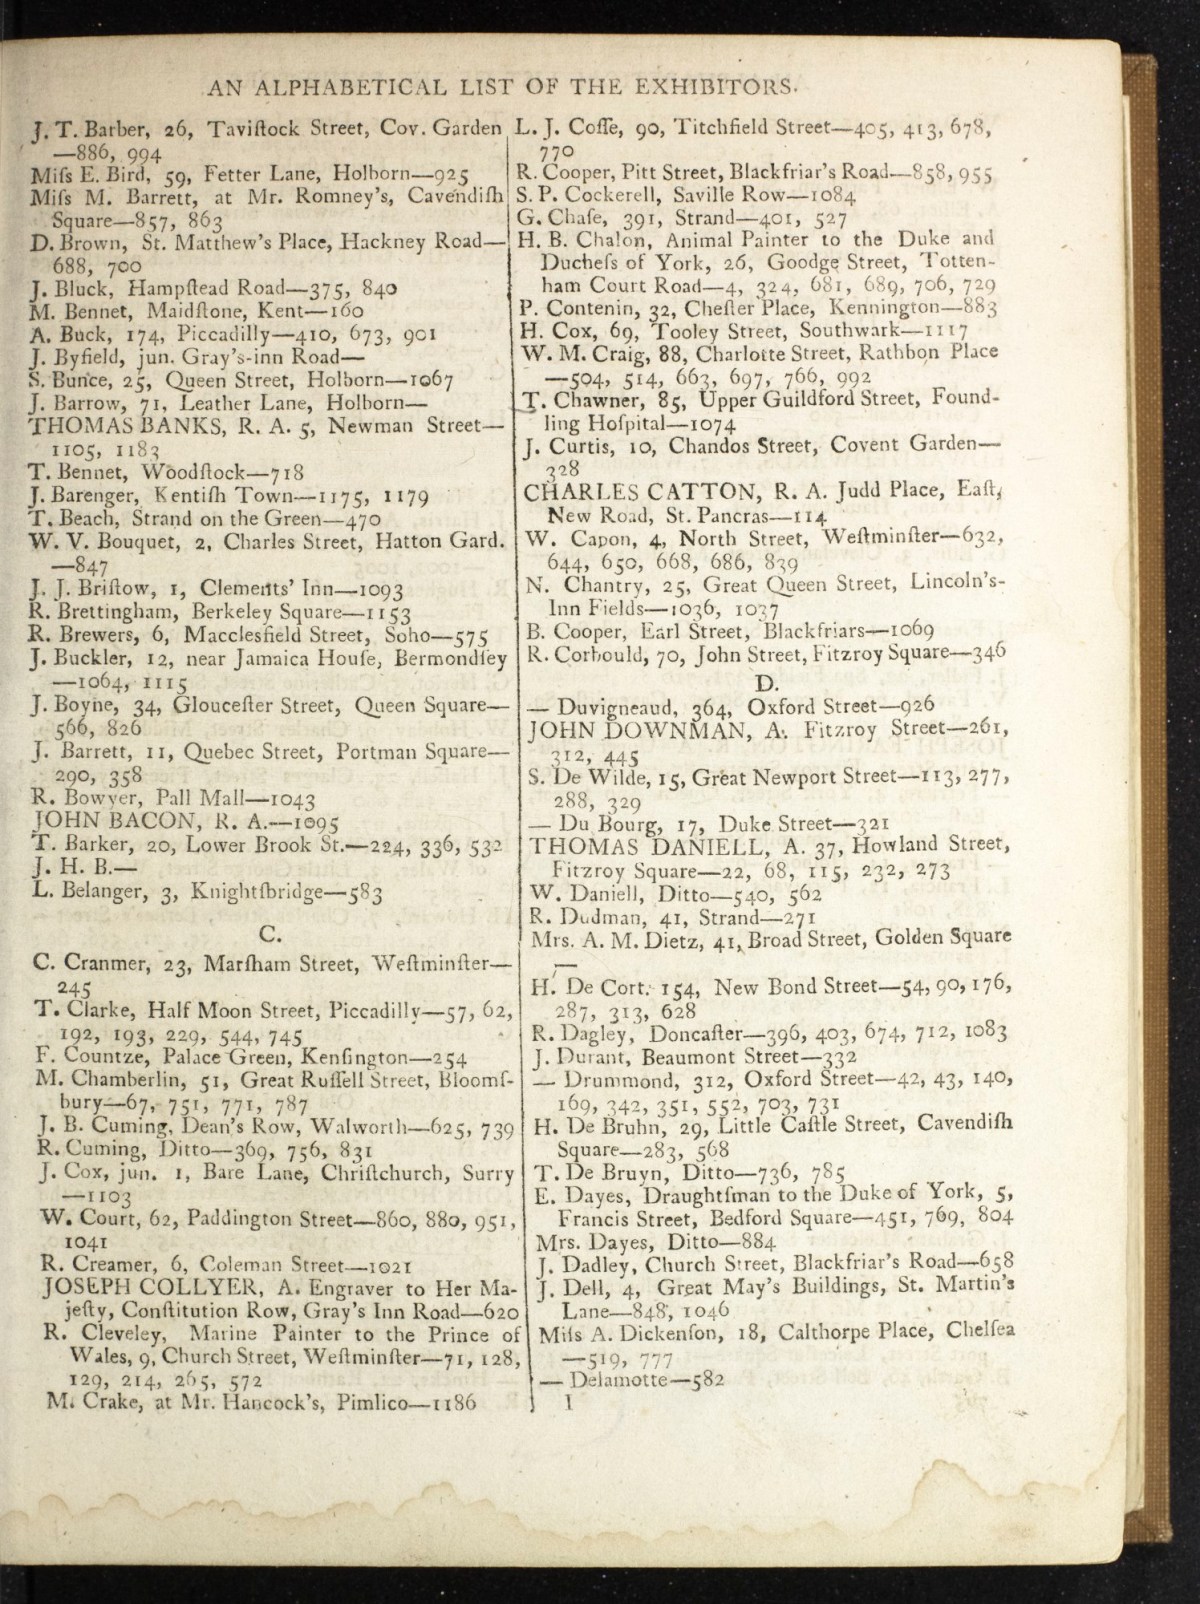 AN ALPHABETICAL LIST OF THE EXHIBITORS.
J. T. Barber, 26, Taviſtock Street, Cov. Garden
—886, 994
Miſs E. Bird, 59, Fetter Lane, Holborn—925
Miſs M. Barrett, at Mr. Romney's, Cavendiſh
Square—857, 863
D. Brown, St. Matthew's Place, Hackney Road—
688, 700
J. Bluck, Hampſtead Road—375, 840
M. Bennet, Maidſtone, Kent—160
A. Buck, 174, Piccadilly—410, 673, 901
J. Byfield, jun. Gray's-inn Road—
S. Bunce, 25, Queen Street, Holborn—1067
J. Barrow, 71, Leather Lane, Holborn—
THOMAS BANKS, R. A. 5, Newman Street—
1105, 1183
T. Bennet, Woodſtock—718
J. Barenger, Kentiſh Town—1175, 1179
T. Beach, Strand on the Green—470
W. V. Bouquet, 2, Charles Street, Hatton Gard.
—847
J. J. Briſtow, 1, Clements' Inn—1093
R. Brettingham, Berkeley Square—1153
R. Brewers, 6, Macclesfield Street, Soho—575
J. Buckler, 12, near Jamaica Houſe, Bermondſey
—1064, 1115
J. Boyne, 34, Glouceſter Street, Queen Square—
566, 826
J. Barrett, 11, Quebec Street, Portman Square—
290, 358
R. Bowyer, Pall Mall—1043
JOHN BACON, R. A.—1095
T. Barker, 20, Lower Brook St.—224, 336, 532
J. H. B.—
L. Belanger, 3, Knightſbridge—583
C.
C. Cranmer, 23, Marſham Street, Weſtminſter—
245
T. Clarke, Half Moon Street, Piccadilly—57, 62,
192, 193, 229, 544, 745
F. Countze, Palace Green, Kenſington—254
M. Chamberlin, 51, Great Ruſſell Street, Bloomſ-
bury—67, 751, 771, 787
J. B. Cuming, Dean's Row, Walworth—625, 739
R. Cuming, Ditto—369, 756, 831
J. Cox, jun. 1, Bare Lane, Chriſtchurch, Surry
—1103
W. Court, 62, Paddington Street—860, 880, 951,
1041
R. Creamer, 6, Coleman Street—1021
JOSEPH COLLYER, A. Engraver to Her Ma-
jeſty, Conſtitution Row, Gray's Inn Road—620
R. Cleveley, Marine Painter to the Prince of
Wales, 9, Church Street, Weſtminſter—71, 128,
129, 214, 265, 572
M. Crake, at Mr. Hancock's, Pimlico—1186
L. J. Coſſe, 90, Titchfield Street—405, 413, 678,
770
R. Cooper, Pitt Street, Blackfriar's Road—858, 955
S. P. Cockerell, Saville Row—1084
G. Chaſe, 391, Strand—401, 527
H. B. Chalon, Animal Painter to the Duke and
Ducheſs of York, 26, Goodge Street, Totten-
ham Court Road—4, 324, 681, 689, 706, 729
P. Contenin, 32, Cheſter Place, Kennington—883
H. Cox, 69, Tooley Street, Southwark—1117
W. M. Craig, 88, Charlotte Street, Rathbon Place
—504, 514, 663, 697, 766, 992
T. Chawner, 85, Upper Guildford Street, Found-
ling Hoſpital—1074
J. Curtis, 10, Chandos Street, Covent Garden—
328
CHARLES CATTON, R. A. Judd Place, Eaſt,
New Road, St. Pancras—114
W. Capon, 4, North Street, Weſtminſter—632,
644, 650, 668, 686, 839
N. Chantry, 25, Great Queen Street, Lincoln's-
Inn Fields—1036, 1037
B. Cooper, Earl Street, Blackfriars—1069
R. Corbould, 70, John Street, Fitzroy Square—346
D.
— Duvigneaud, 364, Oxford Street—926
JOHN DOWNMAN, A. Fitzroy Street—261,
312, 445
S. De Wilde, 15, Great Newport Street—113, 277,
288, 329
— Du Bourg, 17, Duke Street—321
THOMAS DANIELL, A. 37, Howland Street,
Fitzroy Square—22, 68, 115, 232, 273
W. Daniell, Ditto—540, 562
R. Dudman, 41, Strand—271
Mrs. A. M. Dietz, 41, Broad Street, Golden Square
—
H. De Cort. 154, New Bond Street—54, 90, 176,
287, 313, 628
R. Dagley, Doncaſter—396, 403, 674, 712, 1083
J. Durant, Beaumont Street—332
— Drummond, 312, Oxford Street—42, 43, 140,
169, 342, 351, 552, 703, 731
H. De Bruhn, 29, Little Caſtle Street, Cavendiſh
Square—283, 568
T. De Bruyn, Ditto—736, 785
E. Dayes, Draughtſman to the Duke of York, 5,
Francis Street, Bedford Square—451, 769, 804
Mrs. Dayes, Ditto—884
J. Dadley, Church Street, Blackfriar's Road—658
J. Dell, 4, Great May's Buildings, St. Martin's
Lane—848, 1046
Miſs A. Dickenſon, 18, Calthorpe Place, Chelſea
—519, 777
— Delamotte—582
I